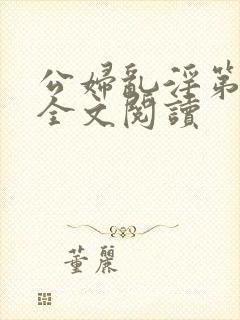 公婦亂淫第
全文閱讀
董麗